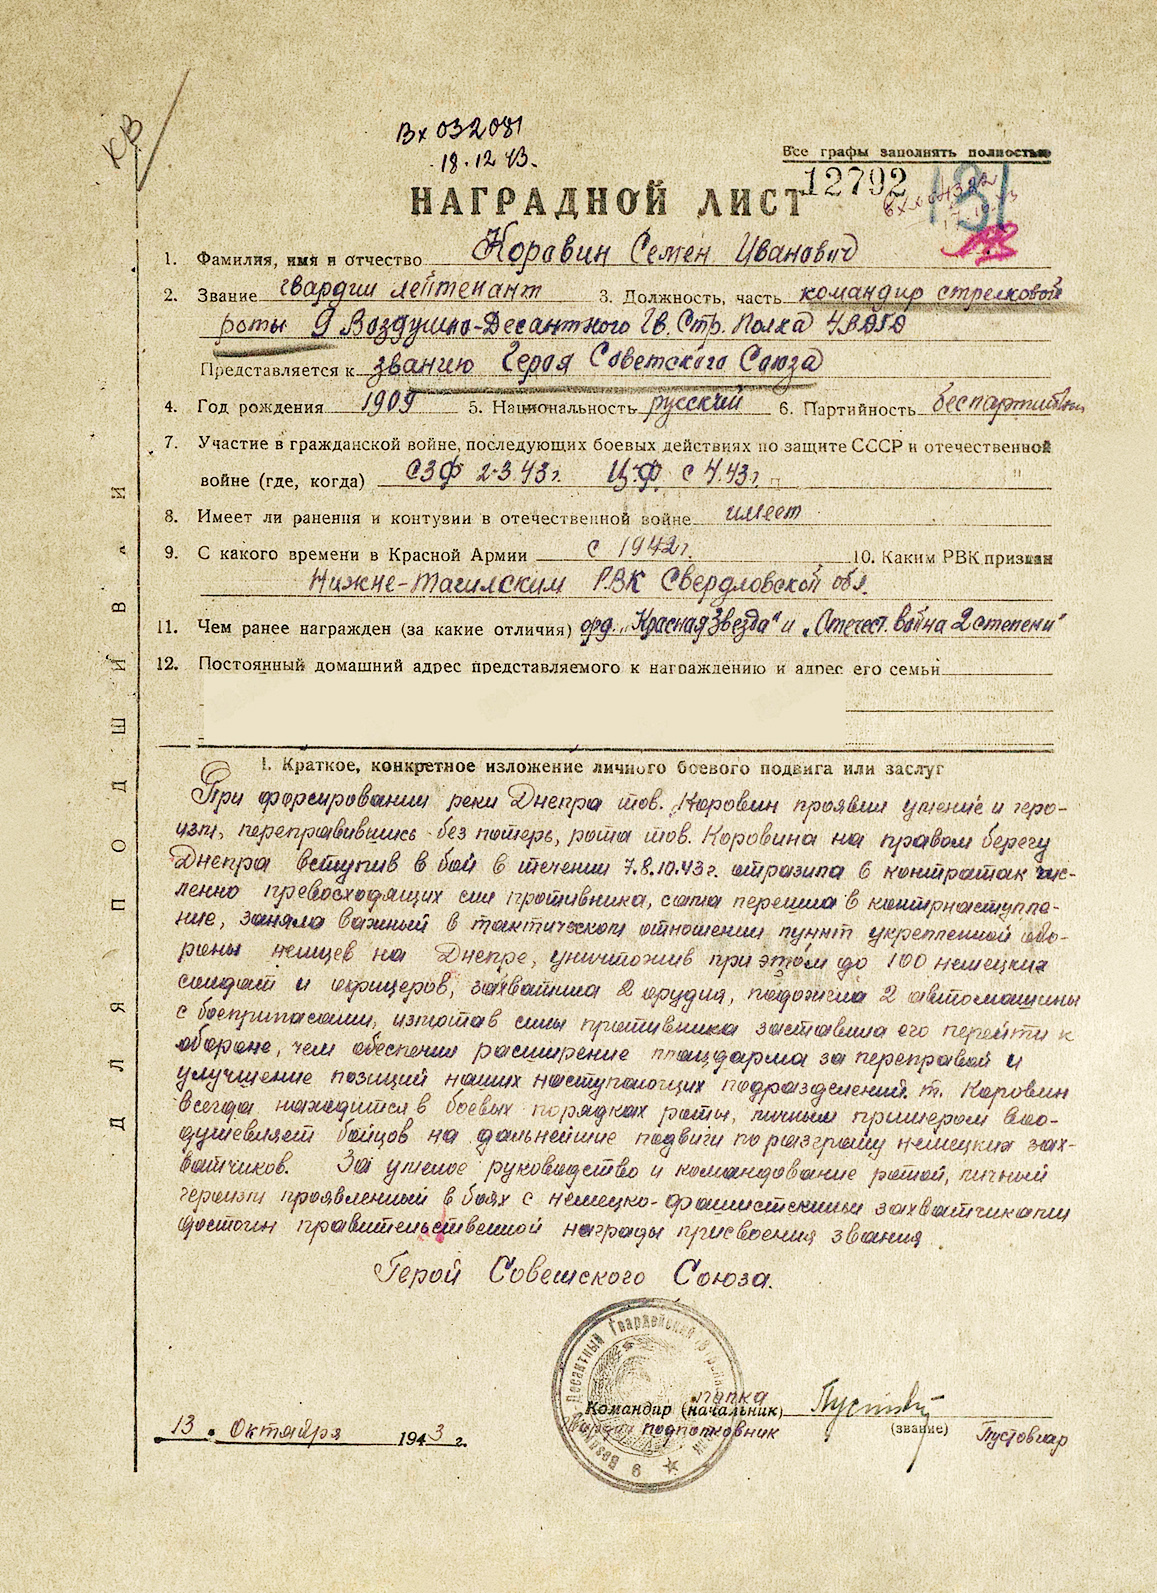 КВ
Вх 032081
18.12 43.
Все графы заполнять полностью
12792
131
НАГРАДНОЙ ЛИСТ
1. Фамилия, имя и отчество Коровин Семен Иванович
2. Звание гвардии лейтенант 3. Должность, часть командир стрелковой
роты 9 Воздушно-Десантного Гв. Стр. Полка 4ВДГД
Представляется к званию Героя Советского Союза
4. Год рождения 1909 5. Национальность русский 6. Партийность беспартийный
7. Участие в гражданской войне, последующих боевых действиях по защите СССР и отечественной
войне (где, когда) СЗФ 2-3.43г. Ц.Ф. с 4.43г.
8. Имеет ли ранения и контузии в отечественной войне имеет
9. С какого времени в Красной Армии с 1942г. 10. Каким РВК призван
Нижне-Тагилским РВК Свердловской обл.
11. Чем ранее награжден (за какие отличия) орд. „Красная Звезда" и „Отечест. война 2 степени"
12. Постоянный домашний адрес представляемого к награждению и адрес его семьи
I. Краткое, конкретное изложение личного боевого подвига или заслуг
При форсировании реки Днепра тов. Коровин проявил умение и геро-
изм, переправившись без потерь, рота тов. Коровина на правом берегу
Днепра вступив в бой в течении 7.8.10.43г. отразила 6 контратак чис-
ленно превосходящих сил противника, сама перешла в контрнаступле-
ние, заняла важный в тактическом отношении пункт укрепленной обо-
роны немцев на Днепре, уничтожив при этом до 100 немецких
солдат и офицеров, захватила 2 орудия, подожгла 2 автомашины
с боеприпасами, измотав силы противника заставила его перейти к
обороне, чем обеспечил расширение плацдарма за переправой и
улучшение позиций наших наступающих подразделений. т. Коровин
всегда находится в боевых порядках роты, личным примером воо-
душевляет бойцов на дальнейшие подвиги по разгрому немецких зах-
ватчиков. За умелое руководство и командование ротой, личный
героизм проявленный в боях с немецко-фашистскими захватчиками
достоин правительственной награды присвоения звания
Герой Советского Союза.
Десантный Гвардейский
9
полка
Командир (начальник)
гвардии подполковник
(звание) Пустовгар
13 Октября 1943 г.
ДЛЯ ПОДШИВКИ